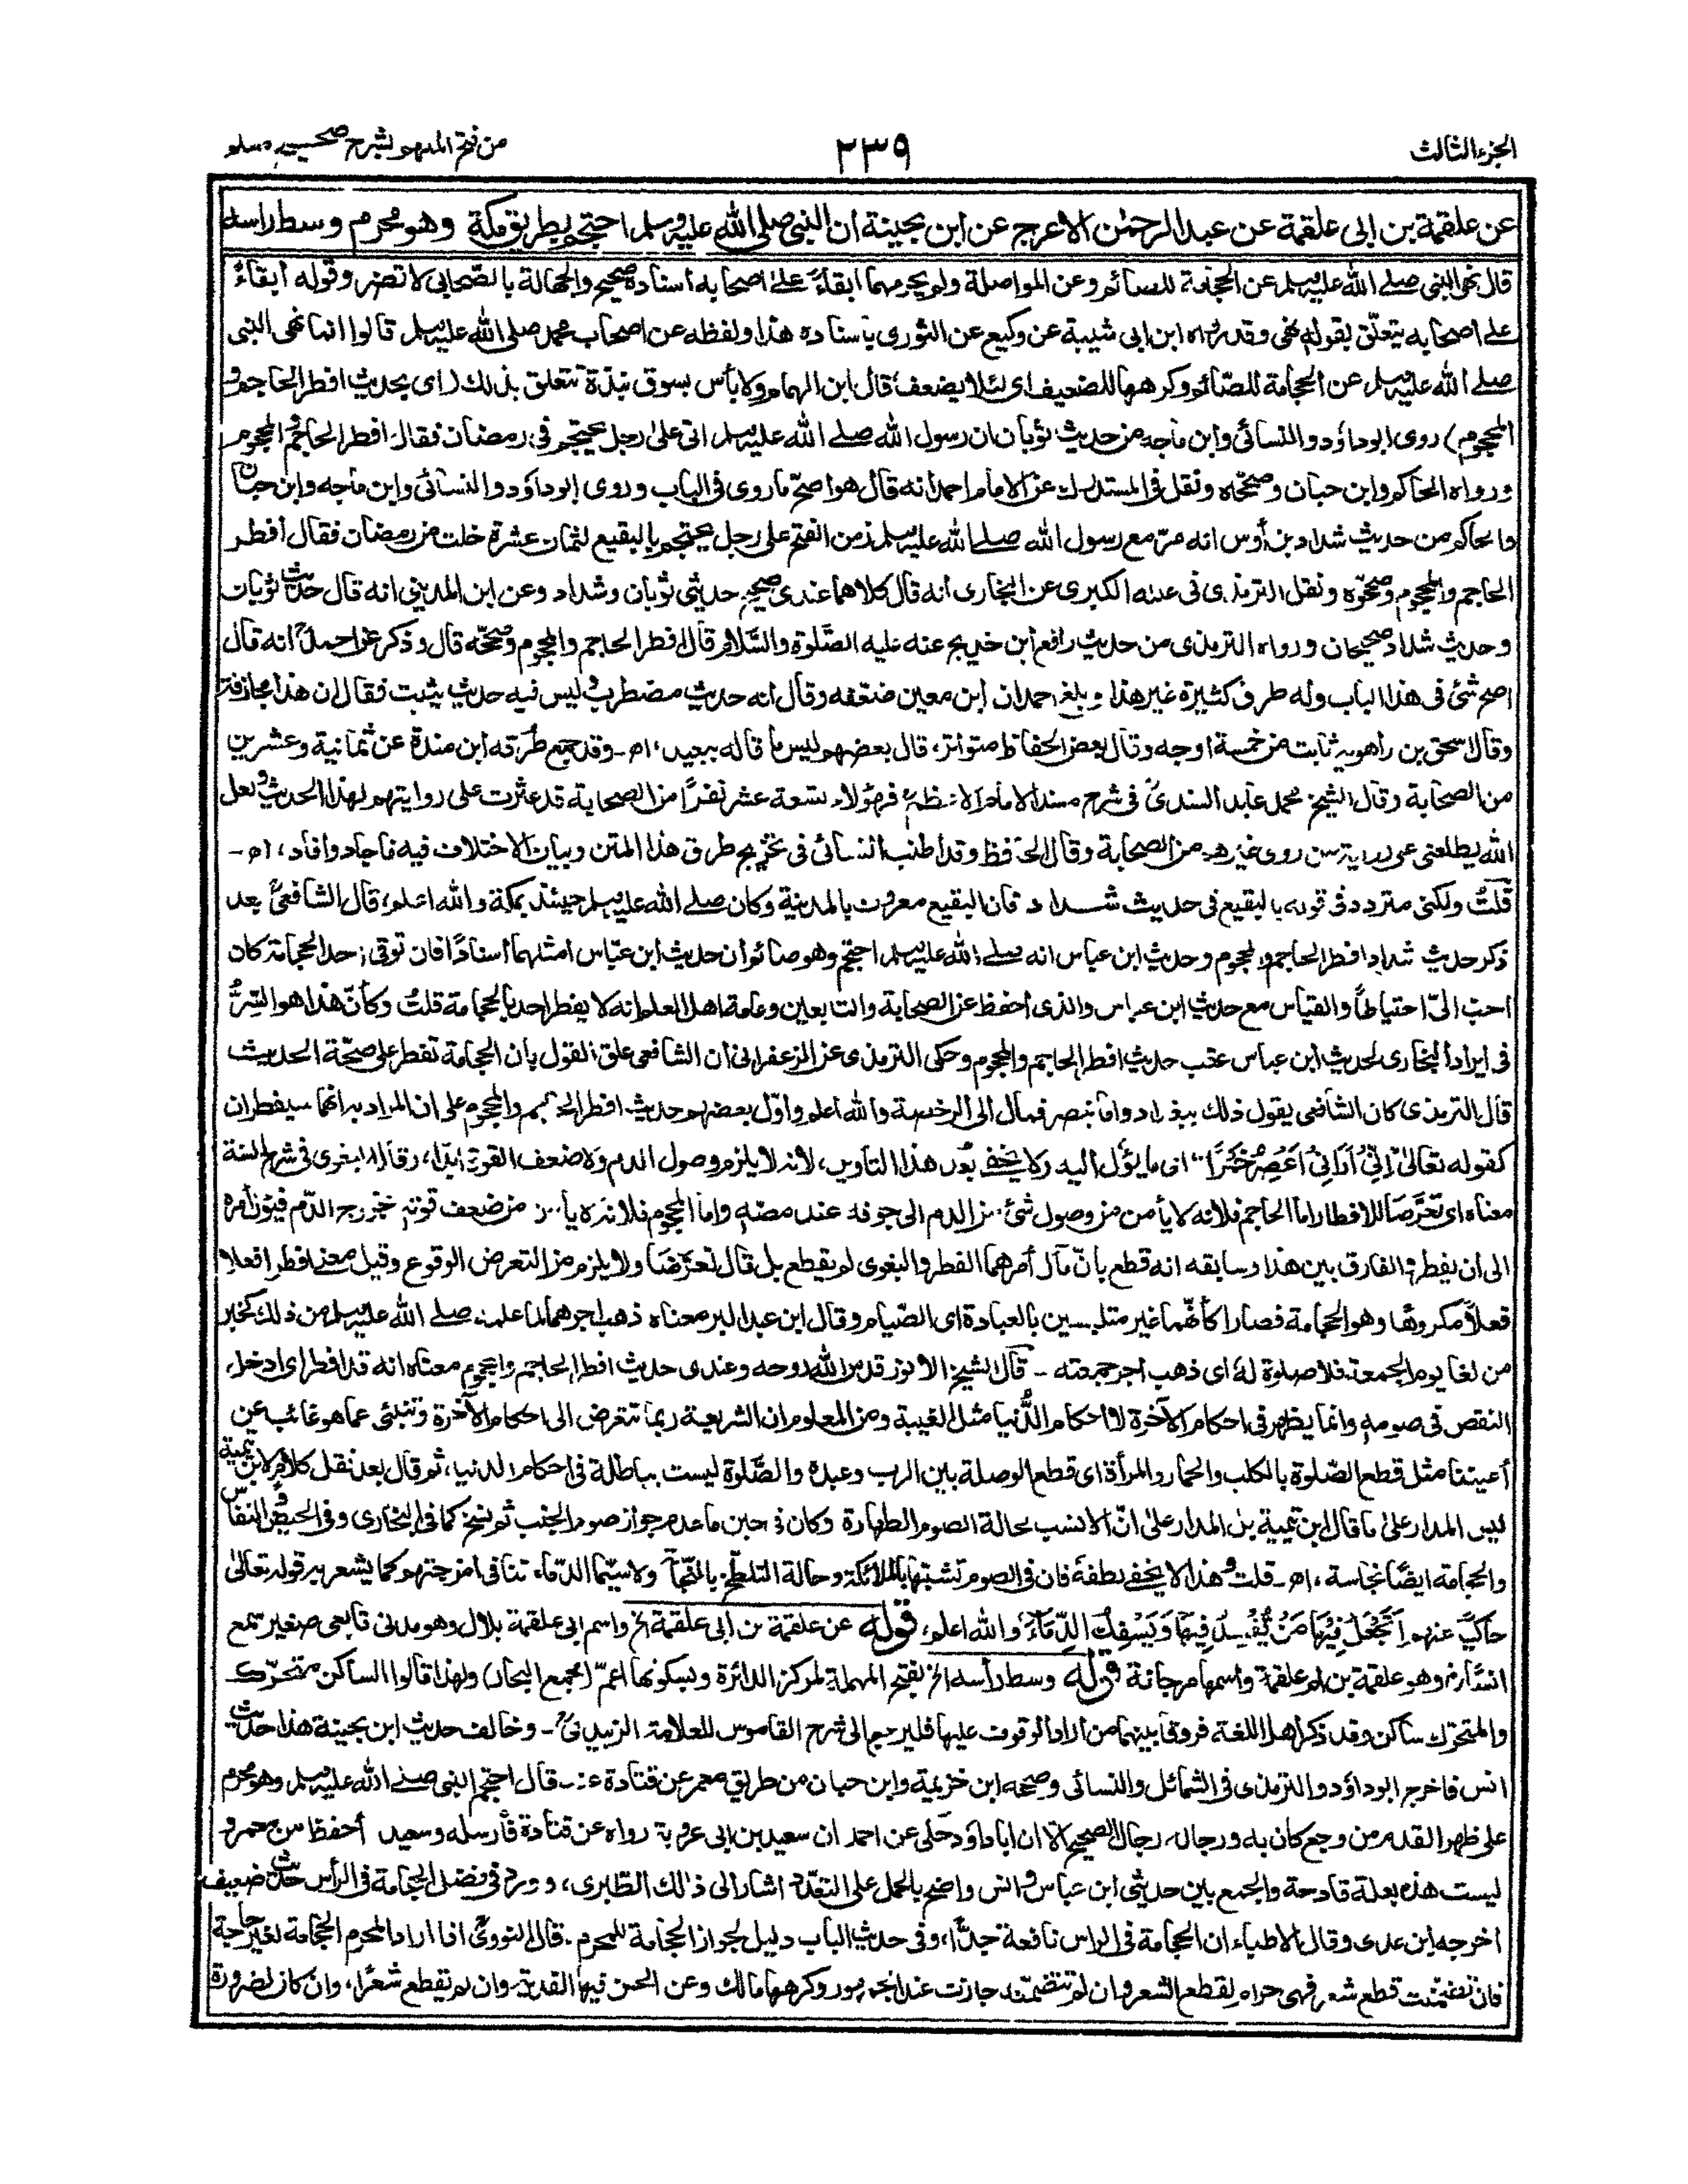 الجزء الثالث
٢٣٩
من فتح الملهم بشرح صحيح مسلم
عن علقمة بن ابى علقمة عن عبد الرحمٰن الاعرج عن ابن بحينة ان النبى صلى الله عليه وسلم احتجم بطريق مكة وهو محرم وسط راسه
قال نهى النبى صلے الله عليه وسلم عن الحجامة للصائم وعن المواصلة ولم يحرمهما ابقاءً علىٰ اصحابه اسناده صحيح والجهالة بالصحابى لا تضر وقوله ابقاءً
على اصحابه يتعلق بقوله نهى وقد رواه ابن ابى شيبة عن وكيع عن الثورى باسناده هذا ولفظه عن اصحاب محمد صلى الله عليه وسلم قالوا انما نهى النبى
صلے الله عليه وسلم عن الحجامة للصّائم وكرهها للضعيف اى لئلا يضعف، قال ابن الهمام ولا بأس بسوق نبذة تتعلق بذلك (اى بحديث افطر الحاجم و
المحجوم) روى ابو داؤد والنسائى وابن ماجه من حديث ثوبان ان رسول الله صلے الله عليه وسلم اتى علىٰ رجل يحتجم فى رمضان فقال افطر الحاجم والمحجوم
ورواه الحاكم وابن حبان وصححّاه ونقل فى المستدرك عن الامام احمد انه قال هو اصحّ ما روى فى الباب وروى ابو داؤد والنسائى وابن ماجه وابن حبان
والحاكم من حديث شداد بن أوس انه مرّ مع رسول الله صلے الله عليه وسلم زمن الفتح على رجل يحتجم بالبقيع لثمان عشرة خلت من رمضان فقال افطر
الحاجم والمحجوم وصحّحوه ونقل الترمذى فى علله الكبرى عن البخارى انه قال كلاهما عندى صحيح حديثى ثوبان وشداد وعن ابن المدينى انه قال حديث ثوبان
وحديث شداد صحيحان ورواه الترمذى من حديث رافع ابن خديج عنه عليه الصَّلوة والسَّلام قال افطر الحاجم والمحجوم وصححّه قال وذكر عن احمدؒ انه قال
اصح شئ فى هذا الباب وله طرق كثيرة غير هذا وبلغ احمد ان ابن معين ضعّفه وقال انه حديث مضطرب وليس فيه حديث يثبت فقال ان هذا مجازفة
وقال اسحٰق بن راهويه ثابت من خمسة اوجه وقال بعض الحفاظ متواتر، قال بعضهم ليس ما قاله ببعيد، اھ ـ وقد جمع طرقه ابن مندة عن ثمانية وعشرين
من الصحابة وقال الشيخ محمد عابد السندىؒ فى شرح مسند الامام الاعظم فهؤلاء تسعة عشر نفرًا من الصحابة قد عثرت على روايتهم لهذا الحديث ولعل
الله يطلعنى على رواية من روى غيرهم من الصحابة وقال الحافظ وقد اطنب النسائى فى تخريج طرق هذا المتن وبيان الاختلاف فيه فاجاد وافاد، اھ ـ
قلتُ ولكنى متردد فى قوله بالبقيع فى حديث شداد فان البقيع معروف بالمدينة وكان صلے الله عليه وسلم حينئذ بمكة والله اعلم، قال الشافعىؒ بعد
ذكر حديث شداد افطر الحاجم والمحجوم وحديث ابن عباس انه صلے الله عليه وسلم احتجم وهو صائم ان حديث ابن عبّاس امثلهما أسنادًا فان توقى احد الحجامة كان
احبّ الىّ احتياطًا والقياس مع حديث ابن عباس والذى احفظ عن الصحابة والتابعين وعامة اهل العلم انه لا يفطر احد بالحجامة قلتُ وكأنّ هذا هو السِّرُّ
فى ايراد البخارى لحديث ابن عباس عقب حديث افطر الحاجم والمحجوم وحكى الترمذى عن الزعفرانى ان الشافعى علق القول بان الحجامة تفطر على صحّة الحديث
قال الترمذى كان الشافعى يقول ذلك ببغداد واما بمصر فمال الى الرخصة والله اعلم واوّل بعضهم حديث افطر الحاجم والمحجوم على ان المراد به انهما سيفطران
كقوله تعالىٰ اِنِّىْٓ اَرَانِىْٓ اَعْصِرُ خَمْرًا اى ما يؤل اليه ولا يخفى بُعد هذا التاويل، لانه لا يلزم وصول الدم ولا ضعف القوة ابدًا، وقال البغوى فى شرح السنة
معناه اى تعرّضا للافطار اما الحاجم فلانه لا يأمن من وصول شئ من الدم الى جوفه عند مصّه واما المحجوم فلانه لا يأمن من ضعف قوته بخروج الدّم فيؤل أمره
الى ان يفطر والفارق بين هذا وسابقه انه قطع بانّ مآل أمرهما الفطر والبغوى لم يقطع بل قال تعرّضَا ولا يلزم من التعرض الوقوع وقيل معنى افطر افعلا
فعلاً مكروهًا وهو الحجامة فصارا كأنّهما غير متلبسين بالعبادة اى الصّيام وقال ابن عبد البر معناه ذهب اجرهما لما علمه صلے الله عليه وسلم من ذلك كخبر
من لغا يوم الجمعة فلا صلوة له اى ذهب اجر جمعته ـ قال الشيخ الانور قدس الله روحه وعندى حديث افطر الحاجم والمحجوم معناه انه قد افطر اى ادخل
النقص فى صومه وانما يظهر فى احكام الآخرة لا احكام الدُّنيا مثل الغيبة ومن المعلوم ان الشريعة ربما تتعرض الى احكام الآخرة وتنبئى عما هو غائب عن
أعيننا مثل قطع الصّلوة بالكلب والحمار والمرأة اى قطع الوصلة بين الرب وعبده والصَّلوة ليست بباطلة فى احكام الدنيا، ثم قال بعد نقل كلام لابن تيمية
ليس المدار علىٰ ما قال ابن تيمية بل المدار علىٰ انّ الانسب بحالة الصوم الطهارة وكان فى حين ما عدم جواز صوم الجنب ثم نسخ كما فى البخارى وفى الحيض والنفاس
والحجامة ايضًا نجاسة، اھ ـ قلت وهذا لا يخفى لطفه فان فى الصوم تشبّها بالملائكة وحالة التلطخ بالنجاسة ولا سيّما الدّماء تنافى امزجتهم كما يشعر به قوله تعالىٰ
حاكيًا عنهم اَتَجْعَلُ فِيْهَا مَنْ يُّفْسِدُ فِيْهَا وَيَسْفِكُ الدِّمَآءَ والله اعلم، قوله عن علقمة بن ابى علقمة الخ واسم ابى علقمة بلال وهو مدنى تابعى صغير سمع
انسًا وهو علقمة بن ام علقمة واسمها مرجانة قوله وسط رأسه الخ بفتح المهملة لمركز الدائرة وبسكونها اعمّ (مجمع البحار) ولهذا قالوا الساكن متحرّك
والمتحرك ساكن وقد ذكر اهل اللغة فروقا بينهما من اراد الوقوف عليها فليرجع الى شرح القاموس للعلامة الزبيدىؒ ـ وخالف حديث ابن بحينة هذا حديث
انس فاخرج ابو داؤد والترمذى فى الشمائل والنسائى وصححه ابن خزيمة وابن حبان من طريق معمر عن قتادة عنه قال احتجم النبى صلے الله عليه وسلم وهو محرم
على ظهر القدم من وجع كان به ورجاله رجال الصحيح الا ان ابا داؤد حكى عن احمد ان سعيد بن ابى عروبة رواه عن قتادة فأرسله وسعيد أحفظ من معمر و
ليست هذه بعلة قادحة والجمع بين حديثى ابن عباس وانس واضح بالحمل على التعدّد اشار الى ذالك الطّبرى، وورد فى فضل الحجامة فى الرأس حديث ضعيف
اخرجه ابن عدى وقال الاطباء ان الحجامة فى الراس نافعة جدًّا، وفى حديث الباب دليل لجواز الحجامة للمحرم. قال النووىؒ اذا اراد المحرم الحجامة لغير حاجة
فان تضمّنت قطع شعر فهى حرام لقطع الشعر وان لم تتضمّنه جازت عند الجمهور وكرهها مالك وعن الحسن فيها الفدية وان لم يقطع شعرًا، وان كان لضرورة